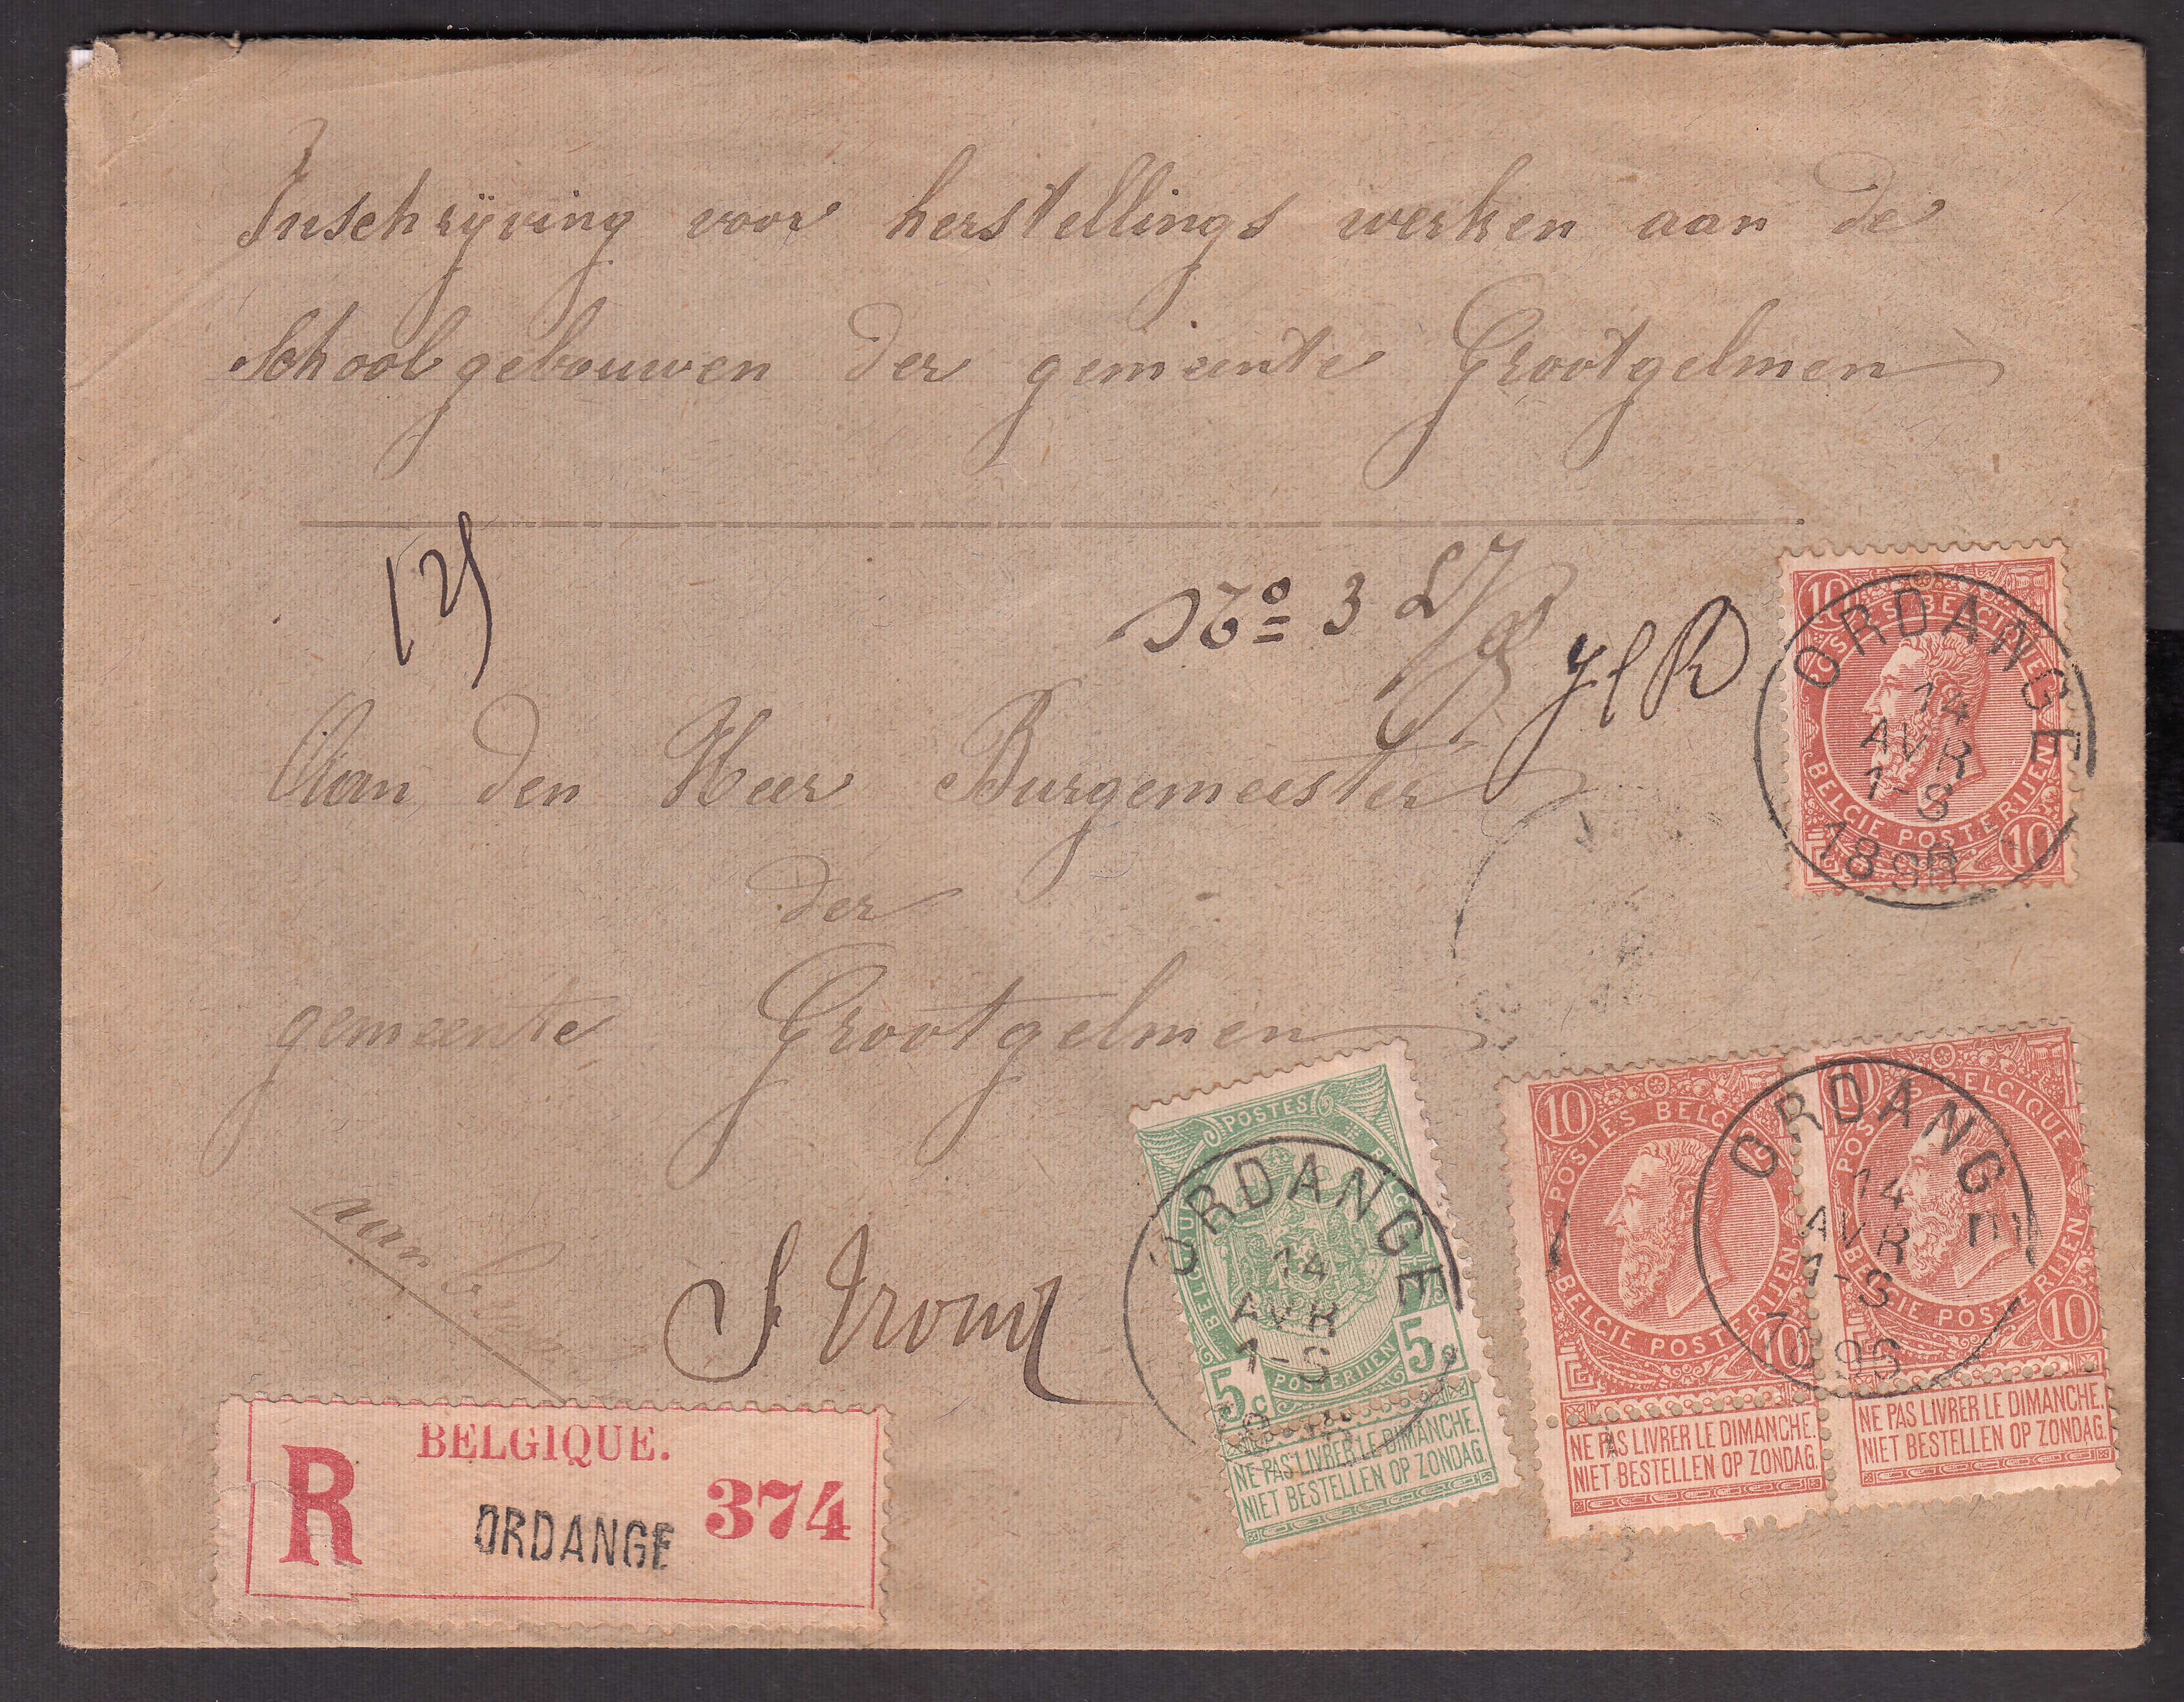 Inschrijving voor herstellings werken aan de
Schoolgebouwen der gemeente Grootgelmen
No 3
Aan den Heer Burgemeester
der
gemeente Grootgelmen
aan
S Trond
BELGIQUE.
R ORDANGE 374
10 POSTES BELGIQUE
BELGIE POSTERIJEN 10
ORDANGE
14
AVR
1-S
189
POSTES BELGIQUE
5c POSTERIJEN 5c
NE PAS LIVRER LE DIMANCHE.
NIET BESTELLEN OP ZONDAG.
ORDANGE
14
AVR
1-S
10 POSTES BELG
BELGIE POSTERIJEN 10
NE PAS LIVRER LE DIMANCHE.
NIET BESTELLEN OP ZONDAG.
10 POSTES BELGIQUE
BELGIE POSTERIJEN 10
NE PAS LIVRER LE DIMANCHE.
NIET BESTELLEN OP ZONDAG.
ORDANGE
14
AVR
1-S
1896